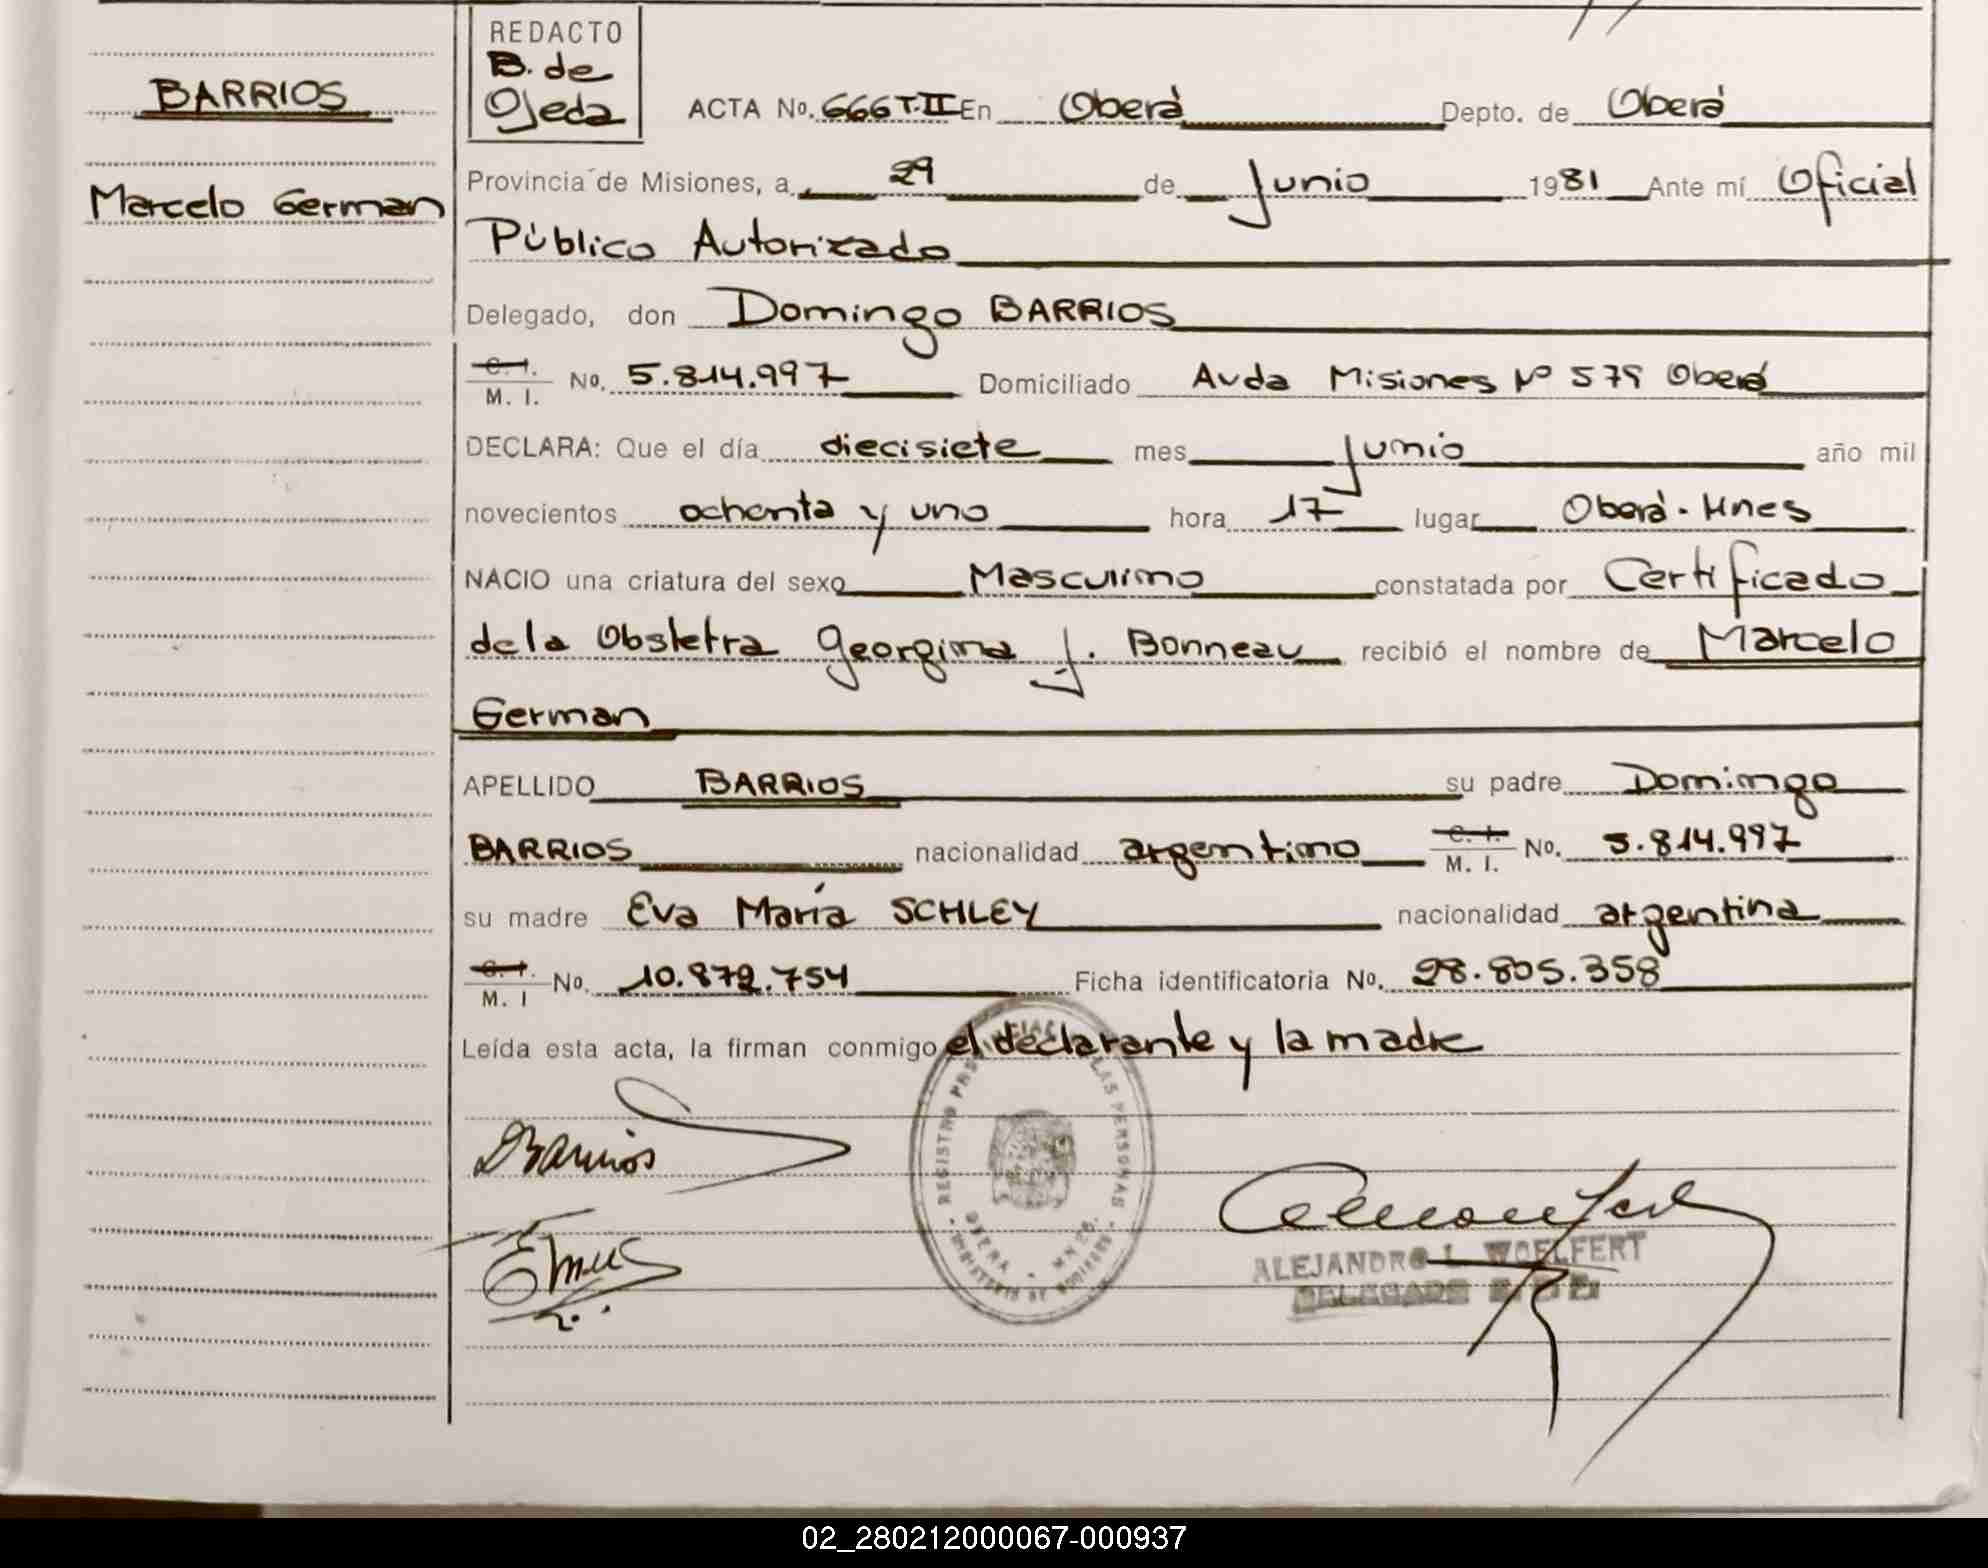 REDACTO
B. de
Ojeda
BARRIOS
Marcelo German
ACTA No. 666 T. II En Oberá Depto. de Oberá
Provincia de Misiones, a 29 de Junio 1981 Ante mí Oficial
Público Autorizado
Delegado, don Domingo BARRIOS
C. I. M. I. No. 5.814.997 Domiciliado Avda Misiones Nº 579 Oberá
DECLARA: Que el día diecisiete mes Junio año mil
novecientos ochenta y uno hora 17 lugar Oberá - Mnes
NACIO una criatura del sexo Masculino constatada por Certificado
de la Obstetra Georgina J. Bonneau recibió el nombre de Marcelo
German
APELLIDO BARRIOS su padre Domingo
BARRIOS nacionalidad argentino C. I. M. I. No. 5.814.997
su madre Eva María SCHLEY nacionalidad argentina
C. I. M. I No. 10.872.754 Ficha identificatoria No. 28.805.358
Leída esta acta, la firman conmigo el declarante y la madre
DBarrios
REGISTRO PROVINCIAL LAS PERSONAS
OBERA
MINISTERIO DE GOBIERNO
ALEJANDRO L. WOELFERT
DELEGADO
02_280212000067-000937